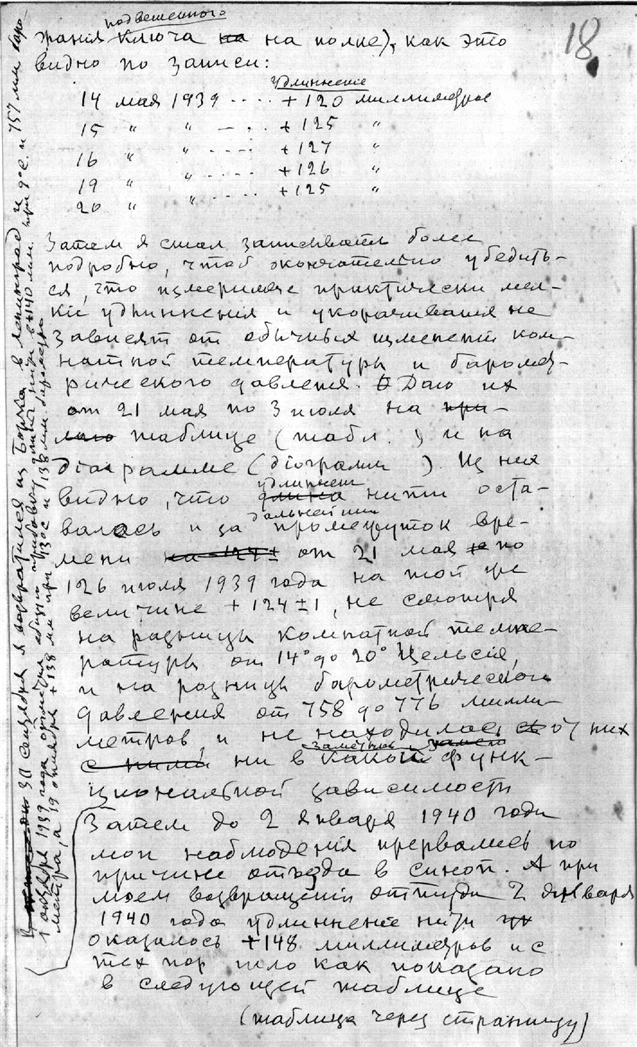 18
подвешенного
жания ключа на на полке), как это
видно по записи:
удлиннение
14 мая 1939 .... +120 миллиметров
15 " " – .. +125 "
16 " " .... +127 "
19 " " .... +126 "
20 " " .... +125 "
Затем я стал записывать более
подробно, чтоб окончательно убедить-
ся, что измеримые практически мел-
кие удлиннения и укорачивания не
зависят от обычных изменений ком-
натной температуры и баромет-
рического давления. Даю их
от 21 мая по 3 июля на при-
таблице (табл. ) и на
діаграмме (діограмм ). Из них
удлиннен
видно, что длина нити оста-
дальнейший
валась и за промежуток вре-
мени от 21 мая по
126 июля 1939 года на той же
величине +124±1, не смотря
на разницы комнатной темпе-
ратуры от 14° до 20° Цельсия,
и на разницы барометрического
давления от 758 до 776 милли-
метров и не находилась от них
заметной
с ними, ни в какой функ-
циональной зависимости
Затем до 2 января 1940 года
мои наблюдения прервались по
причине отъезда в А при
моем возвращении оттуда 2 января
1940 года удлиннение нити
оказалось +148 миллиметров и с
тех пор шло как показано
в следующей таблице
(таблица через страницу)
30 я возвратился из Борка в Ленинград и
1939 года +140 мм. при 9°C. и 757 мм. баро-
метра, а 19 октября +138 мм при